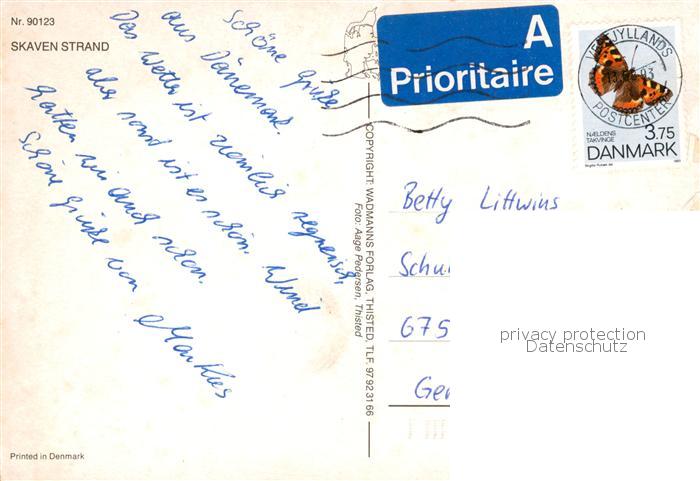 Nr. 90123
SKAVEN STRAND
Schöne Grüße
aus Dänemark.
Das Wetter ist ziemlich regnerisch,
aber sonst ist es schön. Wind
hatten wir auch schon.
Schöne Grüße von
Markus
Printed in Denmark
COPYRIGHT: WADMANNS FORLAG, THISTED, TLF. 97 92 31 66
Foto: Aage Pedersen, Thisted
A
Prioritaire
VESTJYLLANDS
POSTCENTER
NÆLDENS
TAKVINGE
3.75
DANMARK
Betty Littwins
Schu
675
Ger
privacy protection
Datenschutz